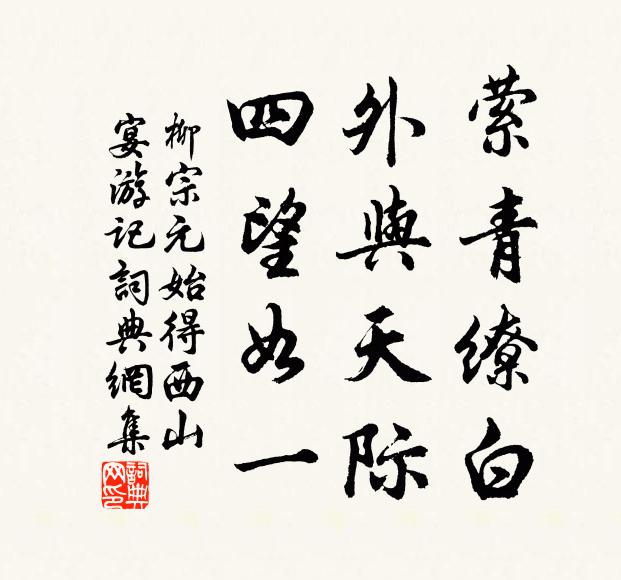 萦青缭白
外與天际
四望如一
柳宗元始得西山
宴游记詞典網集
詞典网印